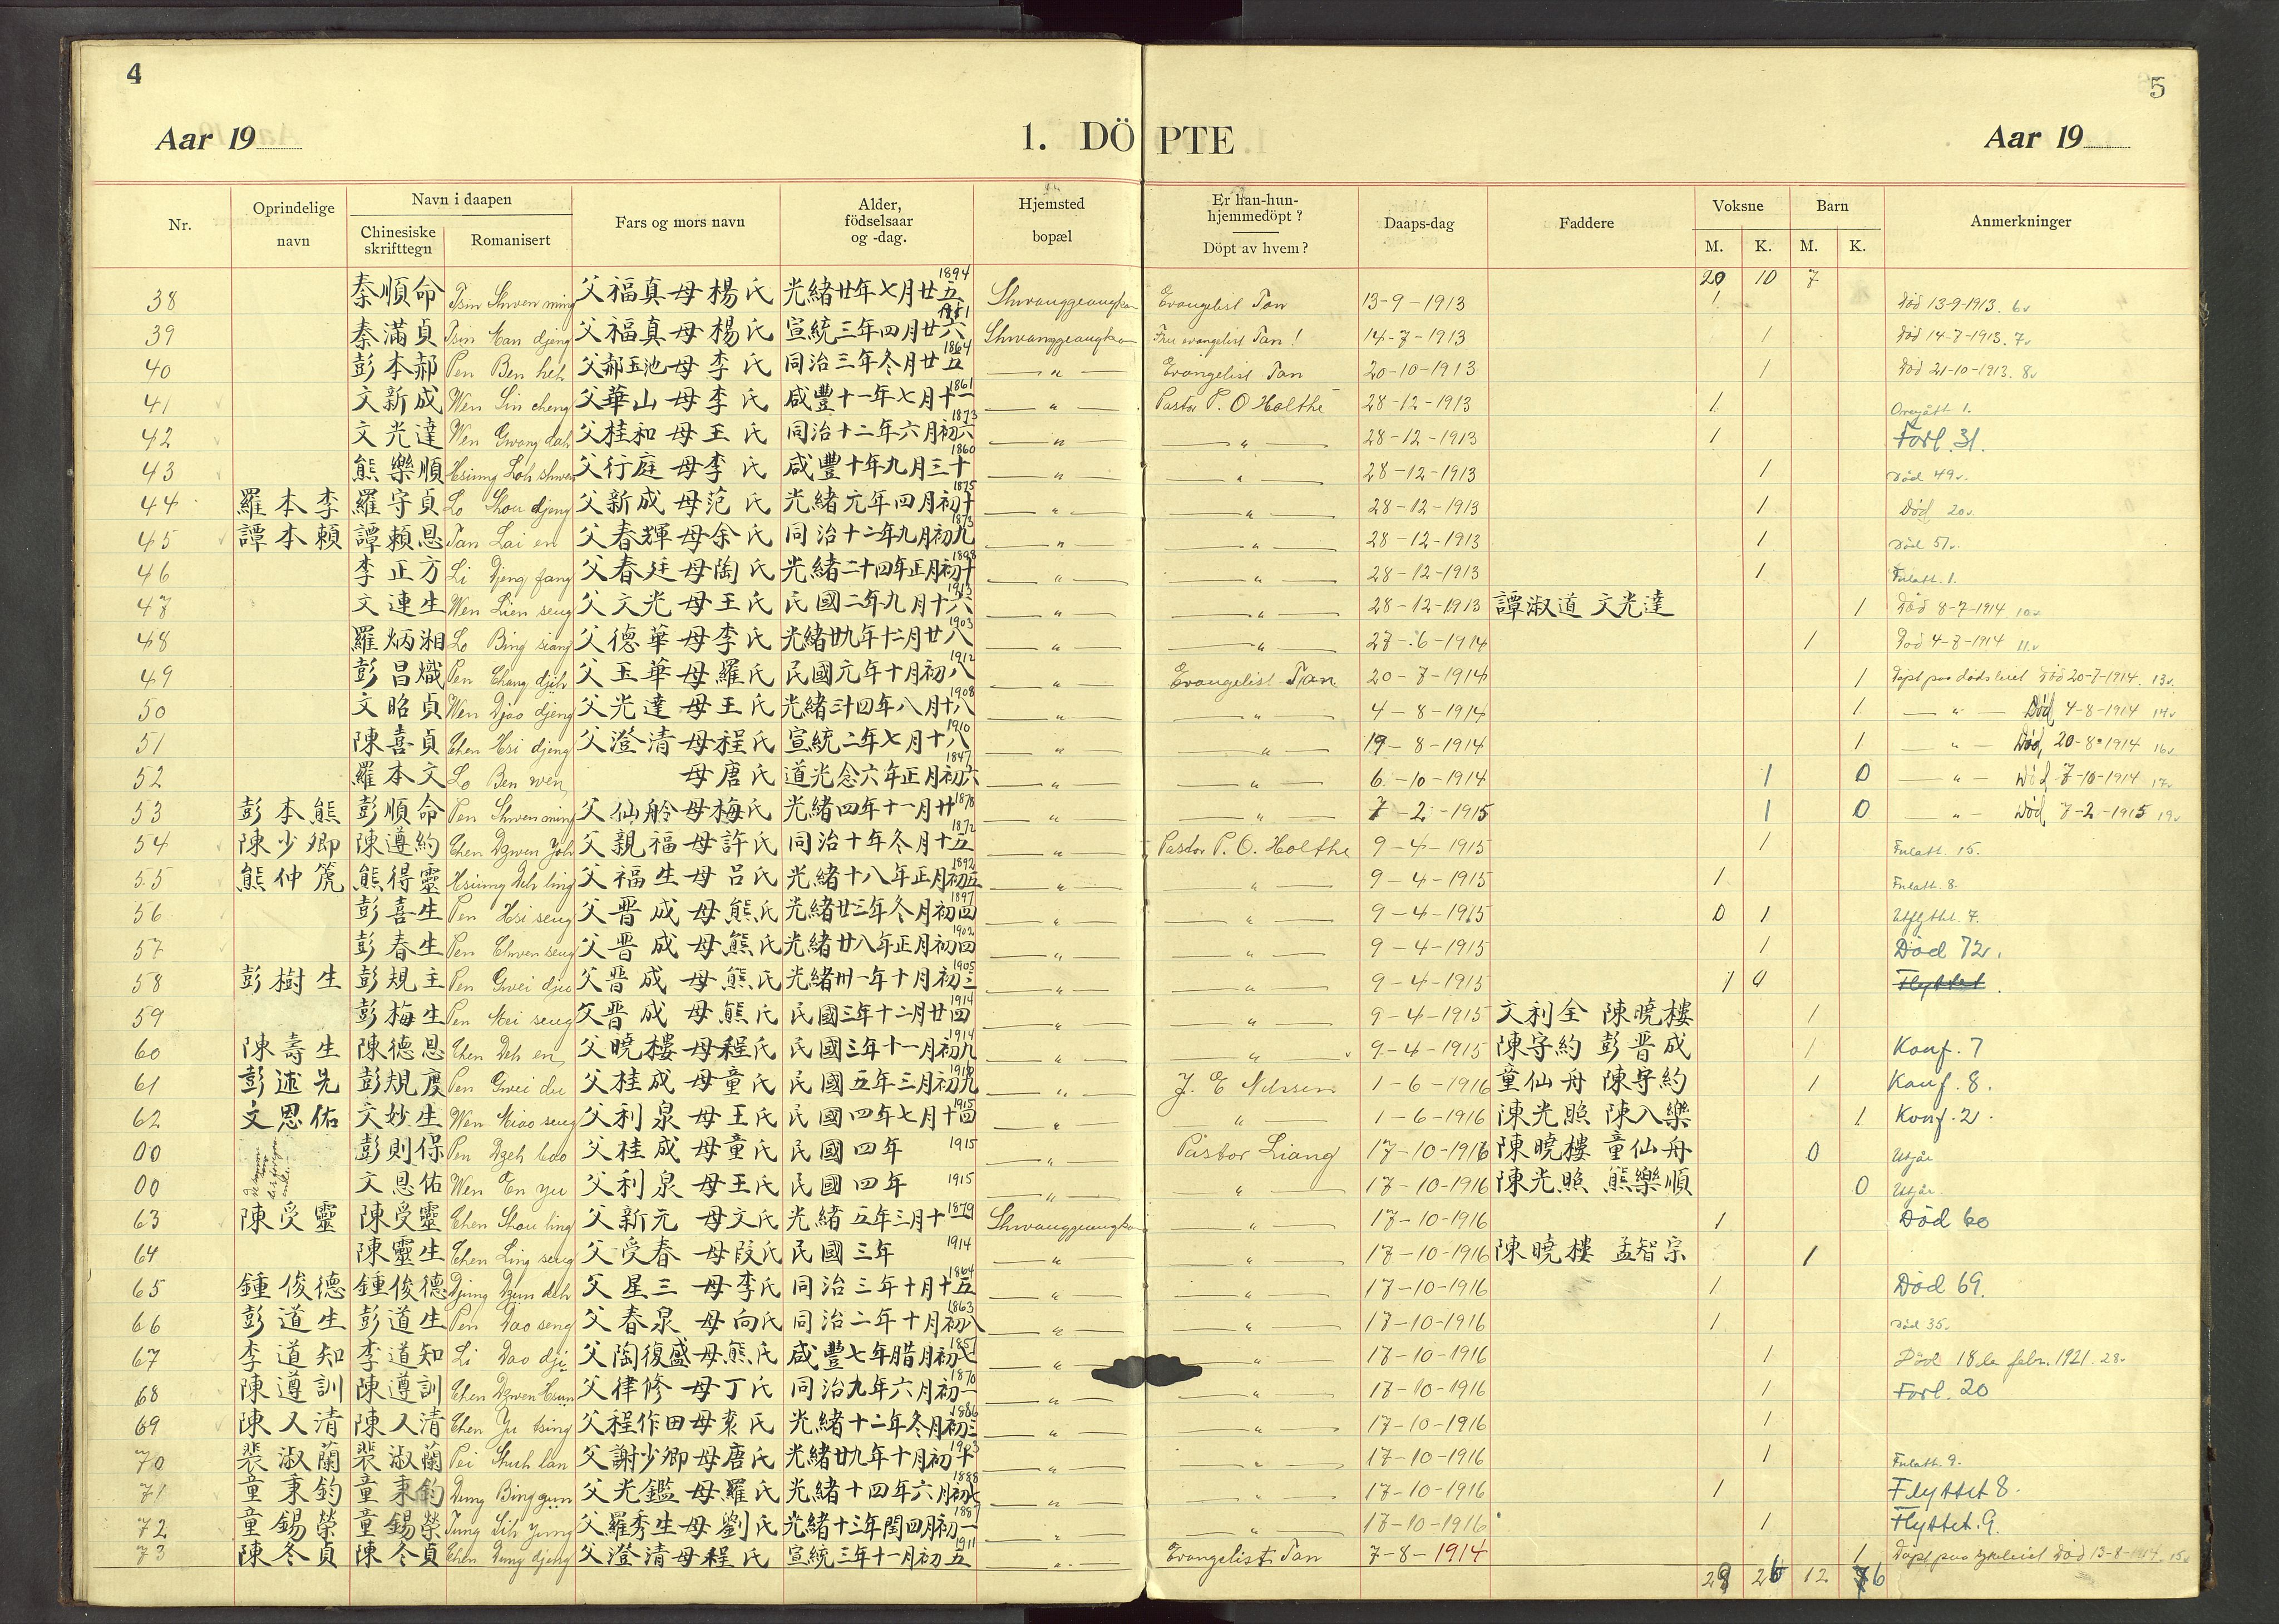 4
5
Aar 19
1. DÖPTE
Aar 19
Nr.
Oprindelige navn
Navn i daapen
Chinesiske skrifttegn
Romanisert
Fars og mors navn
Alder, födselsaar og -dag.
Hjemsted bopæl
Er han-hun-hjemmedöpt? Döpt av hvem?
Daaps-dag
Faddere
Voksne
M. K.
Barn
M. K.
Anmerkninger
20 10 7
38 秦順命 Tsin Shwen ming 父福真母楊氏 光緒廿年七月廿五 1894 Shwanggeangkao Evangelist Tan 13-9-1913 1 Död 13-9-1913. 6v
39 秦滿貞 Tsin Man djeng 父福真母楊氏 宣統三年四月廿六 Shwanggeangkao Fru evangelist Tan! 14-7-1913 1 Död 14-7-1913. 7v
40 彭本郝 Pen Ben heh 父郝玉池母李氏 同治三年冬月廿五 1864 —"— Evangelist Tan 20-10-1913 1 Död 21-10-1913. 8v
41 文新成 Wen Sin cheng 父華山母李氏 咸豐十一年七月十一 1861 —"— Pastor P. O Holthe 28-12-1913 1 1.
42 文光達 Wen Gwang dah 父桂和母王氏 同治十二年六月初六 1873 —"— —"— 28-12-1913 1 Forl. 31.
43 熊樂順 Hsiung Loh shwen 父行庭母李氏 咸豐十年九月三十 1860 —"— —"— 28-12-1913 1 Död 49v.
44 羅本李 羅守貞 Lo Shou djeng 父新成母范氏 光緒元年四月初十 1875 —"— —"— 28-12-1913 1 Död 20v.
45 譚本賴 譚賴恩 Tan Lai en 父春輝母余氏 同治十二年九月初九 1873 —"— —"— 28-12-1913 1 Död 51v.
46 李正方 Li Djeng fang 父春廷母陶氏 光緒二十四年正月初十 1898 —"— —"— 28-12-1913 1 1.
47 文連生 Wen Lien seng 父文光母王氏 民國二年九月十六 1913 —"— —"— 28-12-1913 譚淑道 文光達 1 Död 8-7-1914 10v
48 羅炳湘 Lo Bing siang 父德華母李氏 光緒廿九年十二月廿八 1903 —"— —"— 27-6-1914 1 Död 4-7-1914 11v
49 彭昌熾 Pen Chang djih 父玉華母羅氏 民國元年十月初八 1912 —"— Evangelist Tan 20-7-1914 1 Döpt paa dödsleiet Död 20-7-1914. 13v.
50 文昭貞 Wen Djao djeng 父光達母王氏 光緒三十四年八月十八 1908 —"— —"— 4-8-1914 1 —"— Död 4-8-1914 14v
51 陳喜貞 Chen Hsi djeng 父澄清母程氏 宣統二年七月十八 1910 —"— —"— 19-8-1914 1 —"— Död, 20-8-1914 16v
52 羅本文 Lo Ben wen 母唐氏 道光念六年正月初六 1847 —"— —"— 6-10-1914 1 0 —"— Död 7-10-1914 17v
53 彭本熊 彭順命 Pen Shwen ming 父仙舲母梅氏 光緒四年十一月廿 1878 —"— —"— 7-2-1915 1 0 —"— Död 7-2-1915 19v
54 陳少卿 陳遵約 Chen Dzwen Yoh 父親福母許氏 同治十年冬月十五 1872 —"— Pastor P. O. Holthe 9-4-1915 1 15.
55 熊仲篪 熊得靈 Hsiung Deh ling 父福生母呂氏 光緒十八年正月初五 1892 —"— —"— 9-4-1915 1 8.
56 彭喜生 Pen Hsi seng 父晋成母熊氏 光緒廿三年冬月初四 1897 —"— —"— 9-4-1915 0 1 Utflyttet. 7.
57 彭春生 Pen Chwen seng 父晋成母熊氏 光緒廿八年正月初四 1902 —"— —"— 9-4-1915 1 Död 72v.
58 彭樹生 彭規主 Pen Gwei dju 父晋成母熊氏 光緒卅一年十月初三 1905 —"— —"— 9-4-1915 1 0 Flyttet.
59 彭梅生 Pen Mei seng 父晋成母熊氏 民國三年十二月廿四 1914 —"— —"— 9-4-1915 文利全 陳曉樓 1
60 陳壽生 陳德恩 Chen Deh en 父曉樓母程氏 民國三年十一月初九 1914 —"— —"— 9-4-1915 陳守約 彭晋成 1 Konf. 7
61 彭述先 彭規度 Pen Gwei du 父桂成母童氏 民國五年三月初九 —"— J. E Nilssen 1-6-1916 童仙舟 陳守約 1 Konf. 8.
62 文恩佑 文妙生 Wen Miao seng 父利泉母王氏 民國四年七月十四 1915 —"— —"— 1-6-1916 陳光照 陳入樂 1 Konf. 2.
00 彭則保 Pen Dzeh bao 父桂成母童氏 民國四年 1915 —"— Pastor Liang 17-10-1916 陳曉樓 童仙舟 0 Utgår
00 文恩佑 Wen En yu 父利泉母王氏 民國四年 1915 —"— —"— 17-10-1916 陳光照 熊樂順 0 Utgår.
63 陳受靈 陳受靈 Chen Shou ling 父新元母文氏 光緒五年三月十一 1879 Shwanggeangkao —"— 17-10-1916 1 Död 60
64 陳靈生 Chen Ling seng 父受春母段氏 民國三年 1914 —"— —"— 17-10-1916 陳曉樓 孟智宗 1
65 鍾俊德 鍾俊德 Djung Dzün deh 父星三母李氏 同治三年十月十五 1864 —"— —"— 17-10-1916 1 Död 69.
66 彭道生 彭道生 Pen Dao seng 父春泉母向氏 同治二年十月初八 1863 —"— —"— 17-10-1916 1 Död 35.
67 李道知 李道知 Li Dao dji 父陶復盛母熊氏 咸豐七年腊月初七 1857 —"— —"— 17-10-1916 1 Död 18de febr. 1921. 28v
68 陳遵訓 陳遵訓 Chen Dzwen Hsün 父律修母丁氏 同治九年六月初一 1870 —"— —"— 17-10-1916 1 Forl. 20
69 陳又清 陳又清 Chen Yu tsing 父程作田母袁氏 光緒十二年冬月初三 1886 —"— —"— 17-10-1916 1
70 裴淑蘭 裴淑蘭 Pei Shuh lan 父謝少卿母唐氏 光緒廿九年十月初十 1903 —"— —"— 17-10-1916 1 9.
71 童秉鈞 童秉鈞 Dung Bing gün 父光鑑母羅氏 光緒十四年六月初七 1888 —"— —"— 17-10-1916 1 Flyttet 8.
72 童錫榮 童錫榮 Tung Sih yung 父羅秀生母劉氏 光緒十三年閏四月初一 1887 —"— —"— 17-10-1916 1 Flyttet. 9.
73 陳冬貞 陳冬貞 Chen Dung djeng 父澄清母程氏 宣統三年十一月初五 1911 —"— Evangelist Tan 7-8-1914 1 Döpt paa sykeleiet Död 13-8-1914. 15v
12